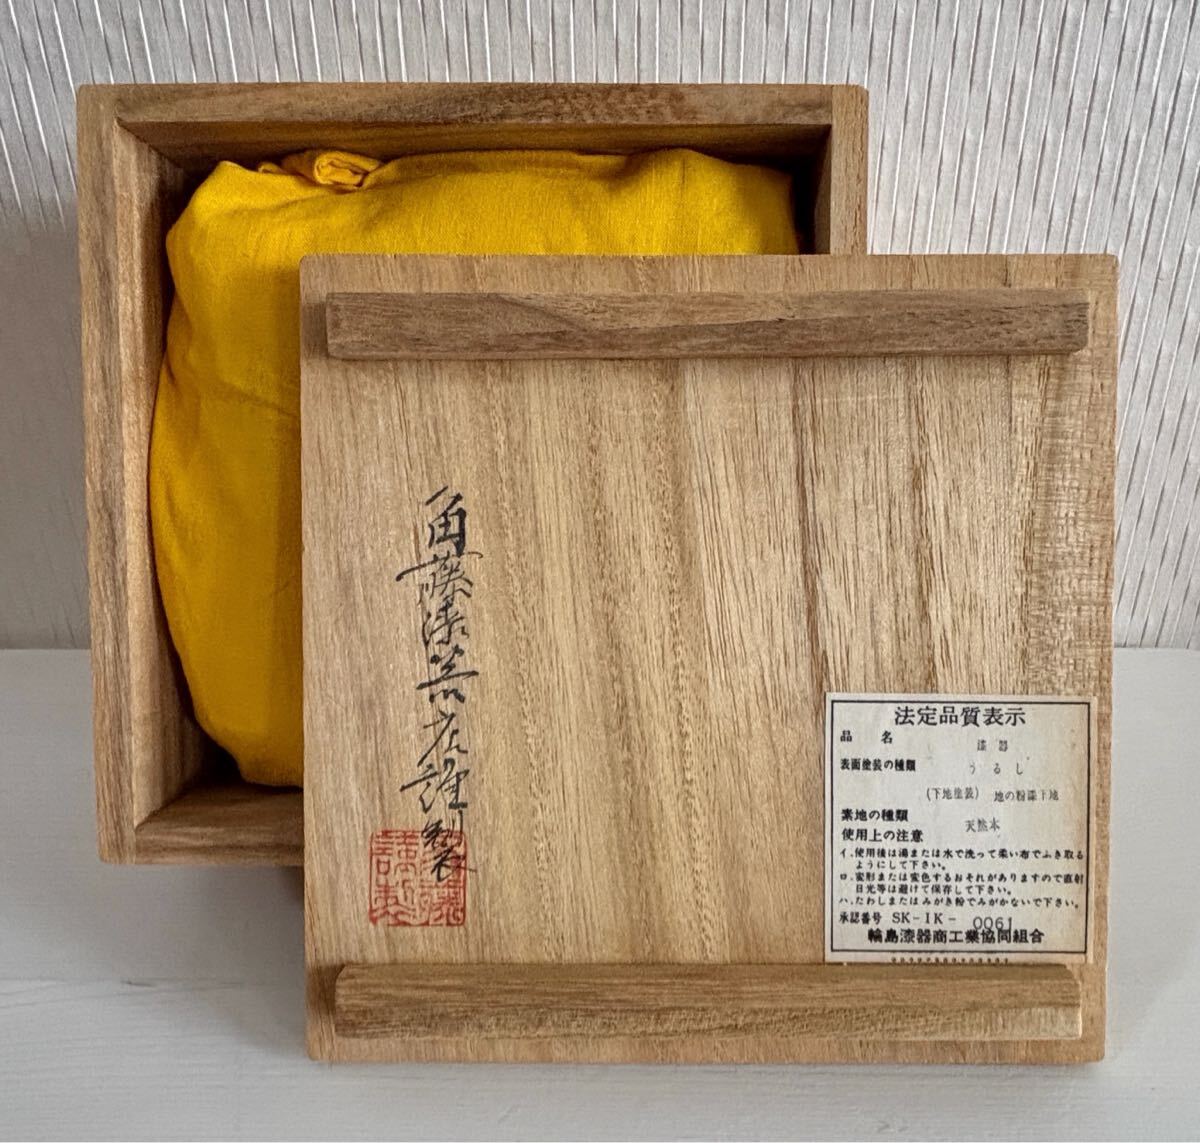 角藤漆器店謹製
謹製
法定品質表示
品 名 漆器
表面塗装の種類 うるし
(下地塗装) 地の粉漆下地
素地の種類 天然木
使用上の注意
イ.使用後は湯または水で洗って柔い布でふき取る
ようにして下さい。
ロ.変形または変色するおそれがありますので直射
日光等は避けて保存して下さい。
ハ.たわしまたはみがき粉でみがかないで下さい。
承認番号 SK-IK-0061
輪島漆器商工業協同組合